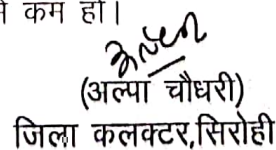 कम हो।
(अल्पा चौधरी)
जिला कलक्टर,सिरोही